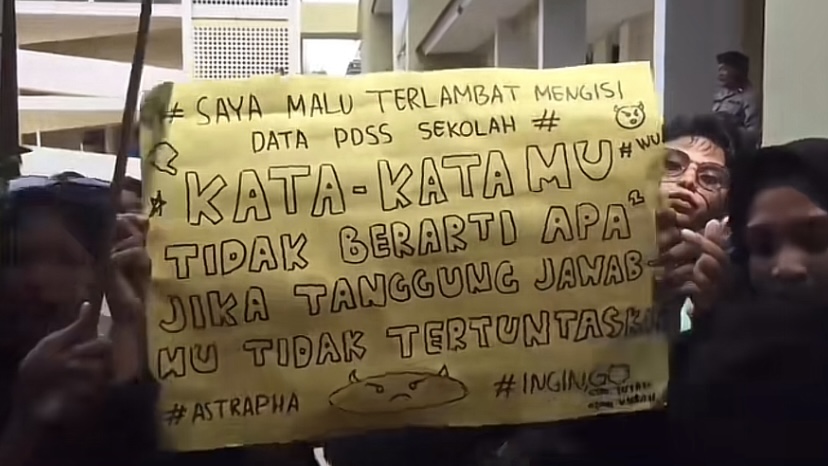 # SAYA MALU TERLAMBAT MENGISI
DATA PDSS SEKOLAH #
KATA-KATA MU # WU
TIDAK BERARTI APA²
JIKA TANGGUNG JAWAB-
MU TIDAK TERTUNTASKAN
# ASTRAPHA
#INGIN,GO